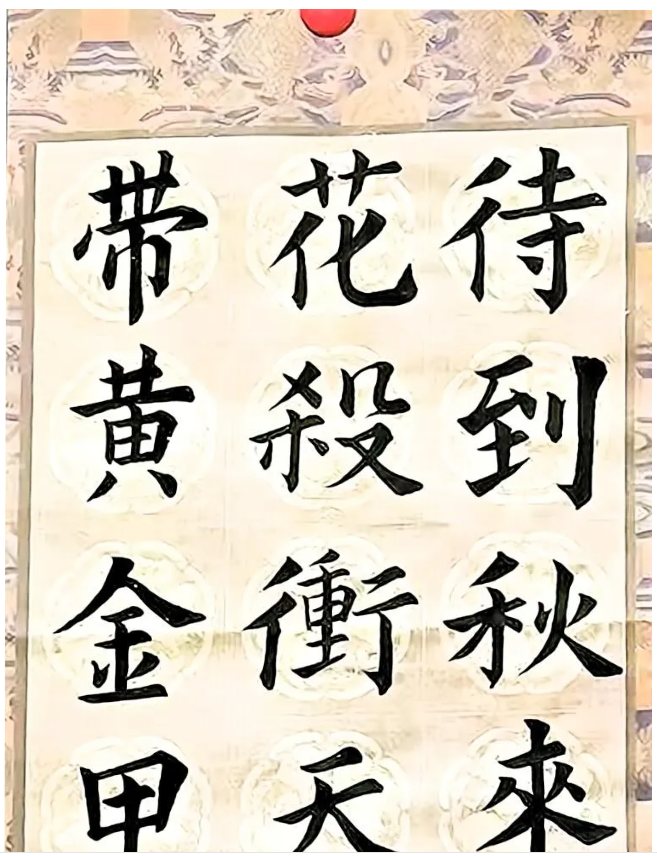 待到秋來
花殺衝天
带黄金甲